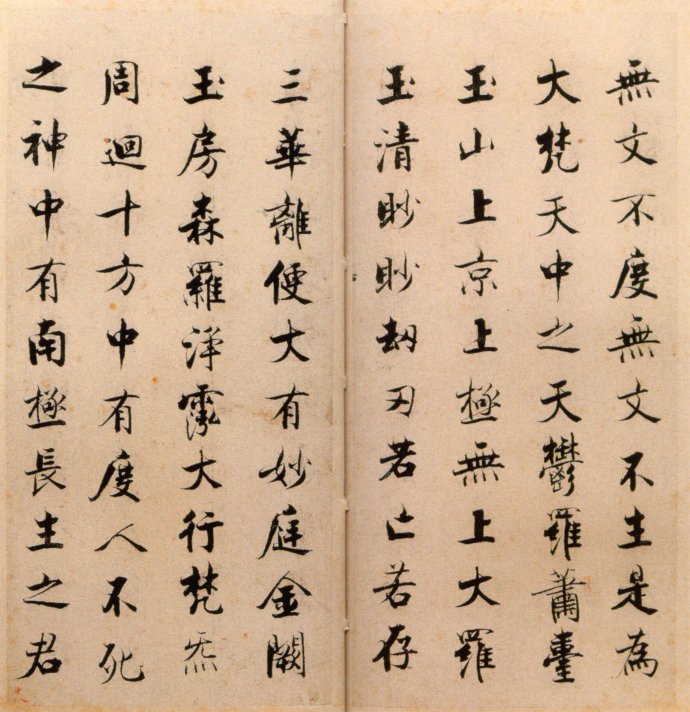 無文不度無文不生是為
大梵天中之天鬱羅蕭臺
玉山上京上極無上大羅
玉清眇眇劫刃若亡若存
三華離便大有妙庭金闕
玉房森羅淨霐大行梵炁
周迴十方中有度人不死
之神中有南極長生之君